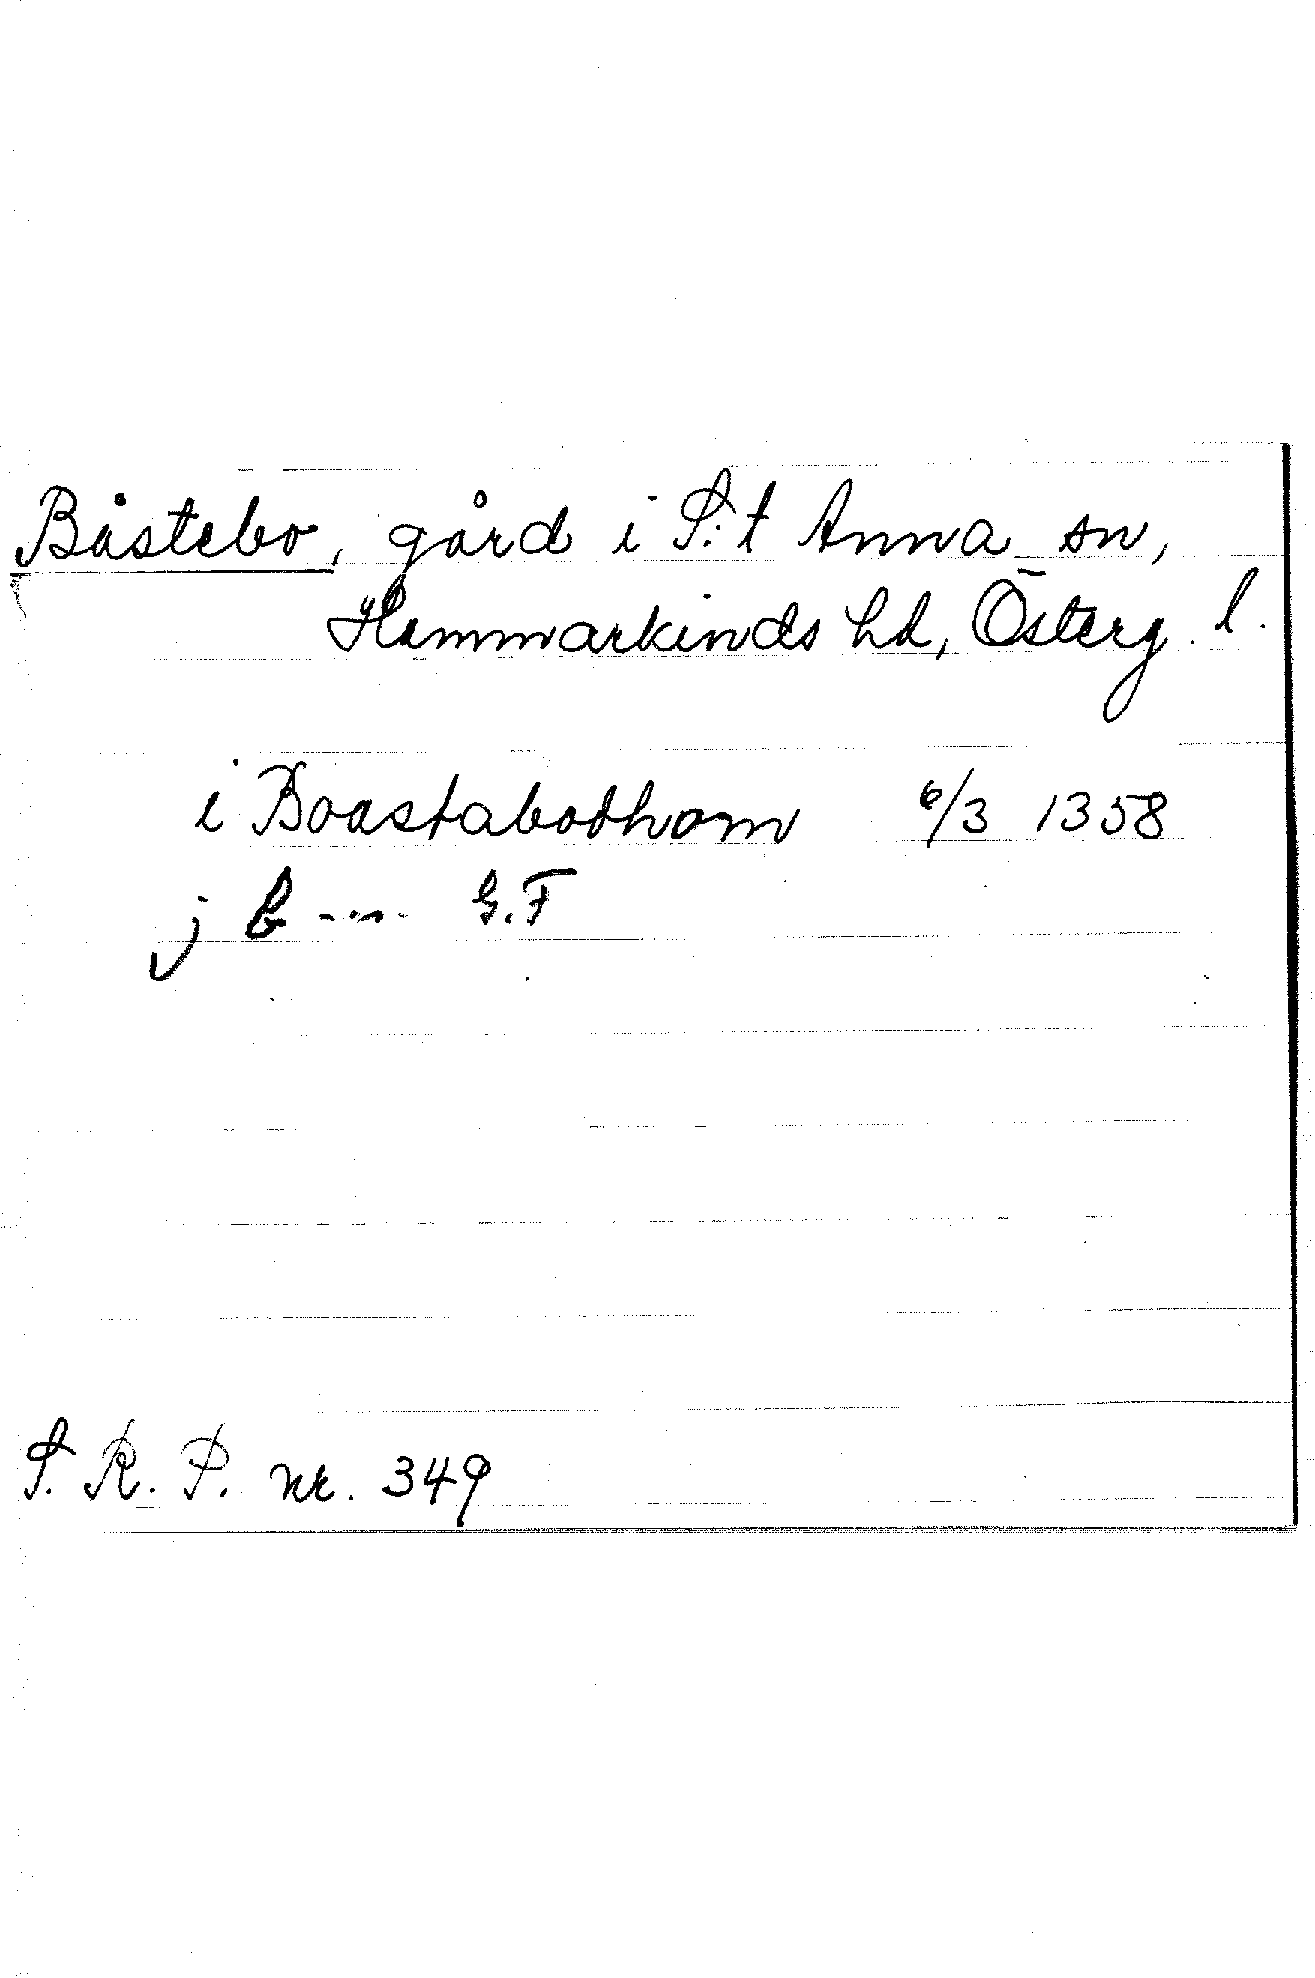 Båstebo, gård i S:t Anna sn,
Hammarkinds hd, Österg. l.
i Boastabodhom 6/3 1358
j b ---- G.F
S. R. P. nr. 349